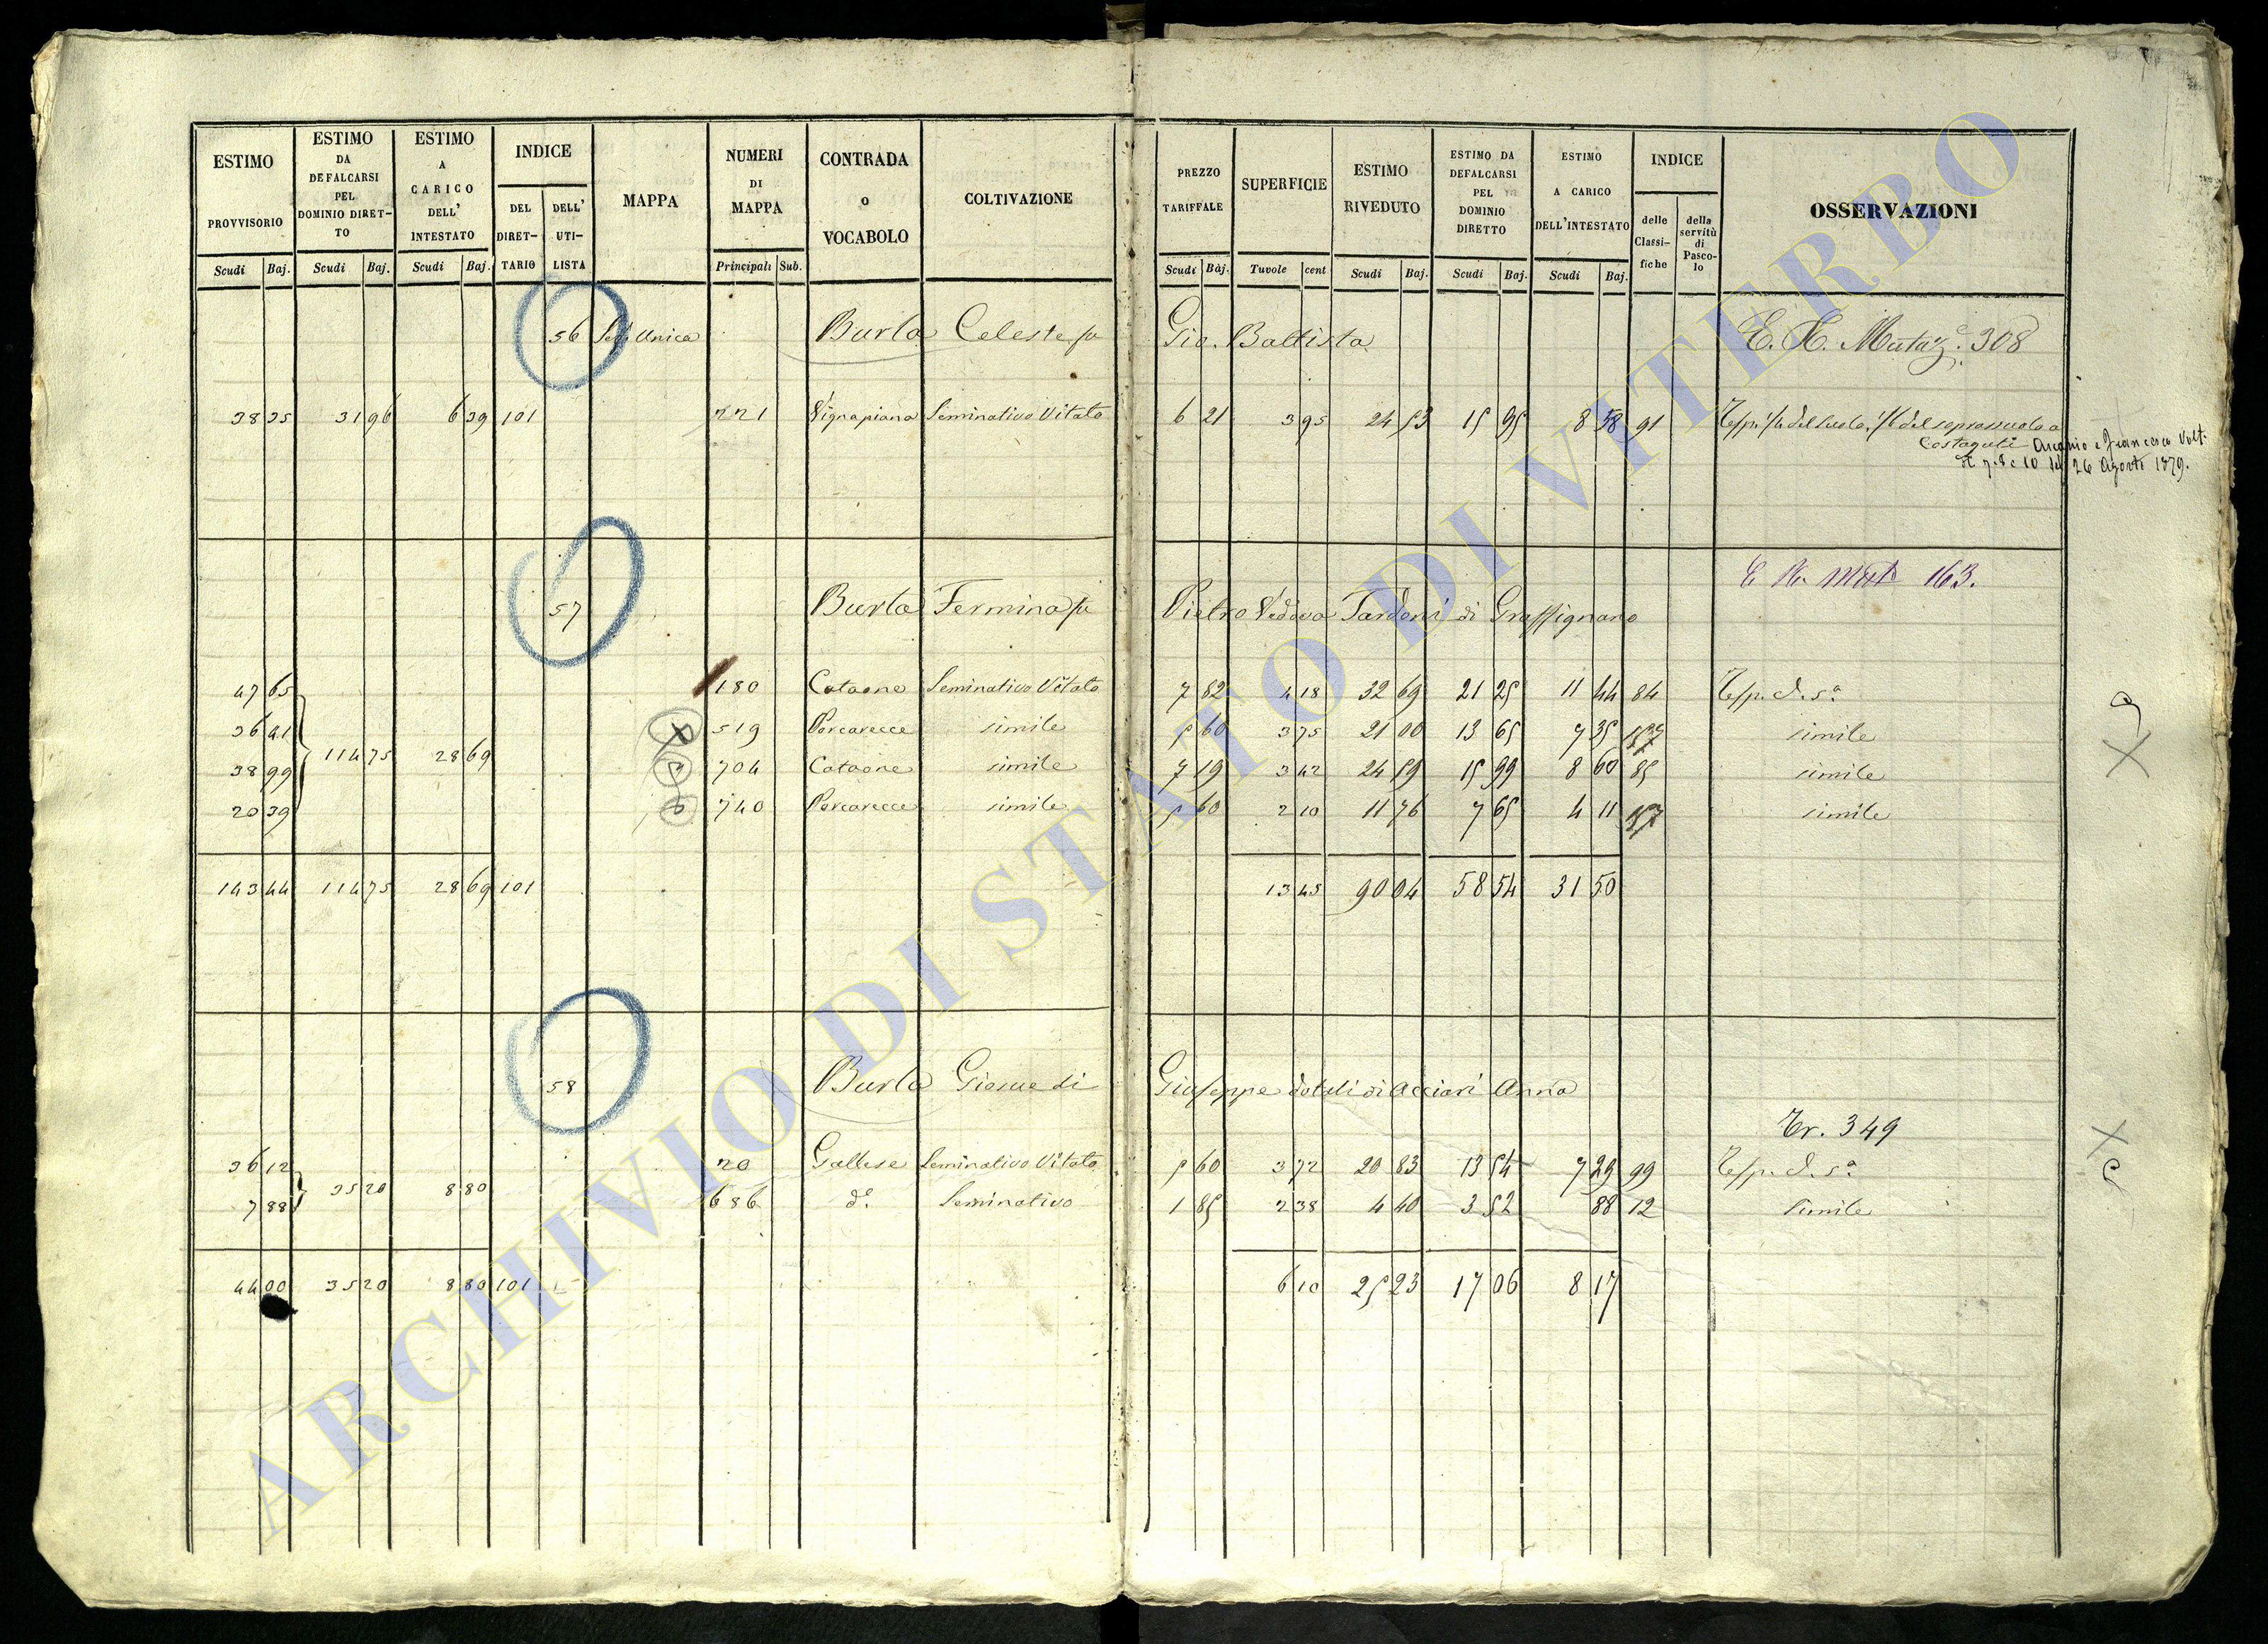 ESTIMO PROVVISORIO Scudi Baj. | ESTIMO DA DEFALCARSI PEL DOMINIO DIRET-TO Scudi Baj. | ESTIMO A CARICO DELL' INTESTATO Scudi Baj. | INDICE DEL DIRET-TARIO | DELL' UTI-LISTA | MAPPA | NUMERI DI MAPPA Principali Sub. | CONTRADA o VOCABOLO | COLTIVAZIONE | PREZZO TARIFFALE Scudi Baj. | SUPERFICIE Tavole cent | ESTIMO RIVEDUTO Scudi Baj. | ESTIMO DA DEFALCARSI PEL DOMINIO DIRETTO Scudi Baj. | ESTIMO A CARICO DELL'INTESTATO Scudi Baj. | INDICE delle Classi-fiche | della servitù di Pasco-lo | OSSERVAZIONI
56 Sez. Unica Burla Celeste fu Gio. Battista E. R. Mutaz.e 308
38 35 31 96 6 39 101 221 Vignapiana Seminativo Vitato 6 21 3 95 24 53 15 95 8 58 91 del suolo, del soprassuolo a
Costaguti Ascanio e Francesco Volt.
26 Agosto 1879.
E R. Mut. 163.
57 Burla Fermina fu Pietro Vedova Tardoni di Graffignano
47 65 180 Cataone Seminativo Vitato 7 82 4 18 32 69 21 25 11 44 84 Resp. d. s.a
36 41 519 Porcarecce simile 5 60 3 75 21 00 13 65 7 35 157 simile
114 75 28 69
38 99 704 Cataone simile 7 19 3 42 24 59 15 99 8 60 85 simile
20 39 740 Porcarecce simile 5 60 2 10 11 76 7 65 4 11 157 simile
143 44 114 75 28 69 101 13 45 90 04 58 54 31 50
58 Burla Giosue di Giuseppe dotali di Acciari Anna
Tr. 349
36 12 20 Gallese Seminativo Vitato 5 60 3 72 20 83 13 54 7 29 99 Resp. d. s.a
35 20 8 80
7 88 686 d.o Seminativo 1 85 2 38 4 40 3 52 88 12 simile
44 00 35 20 8 80 101 6 10 25 23 17 06 8 17
ARCHIVIO DI STATO DI VITERBO